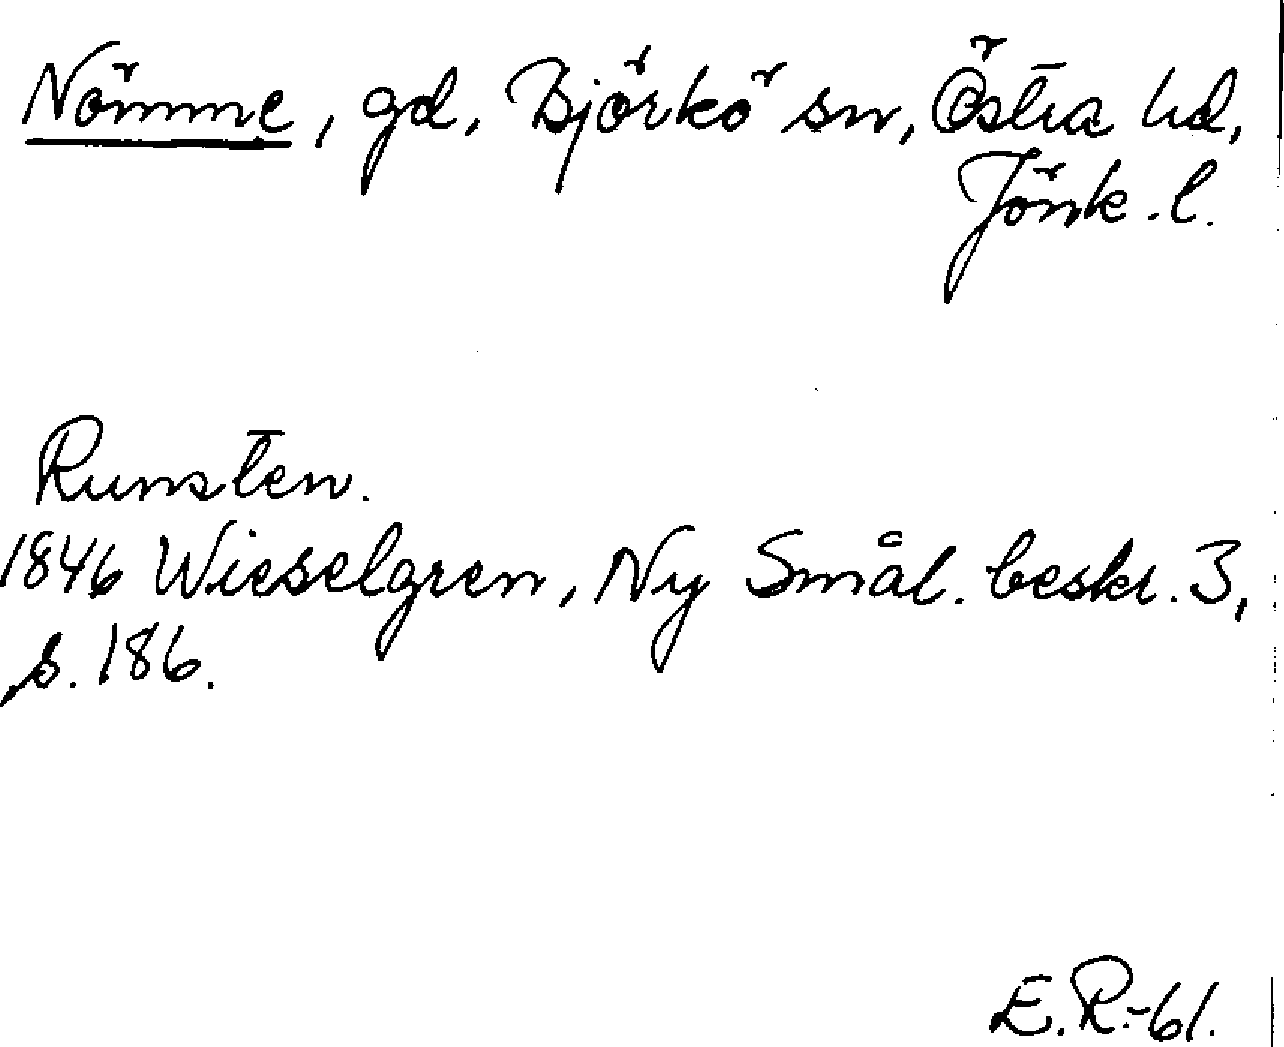 Nömme, gd, Björkö sn, Östra hd,
Jönk. l.
Runsten.
1846 Wieselgren, Ny Smål. beskr. 3,
s. 186.
E.R.-61.